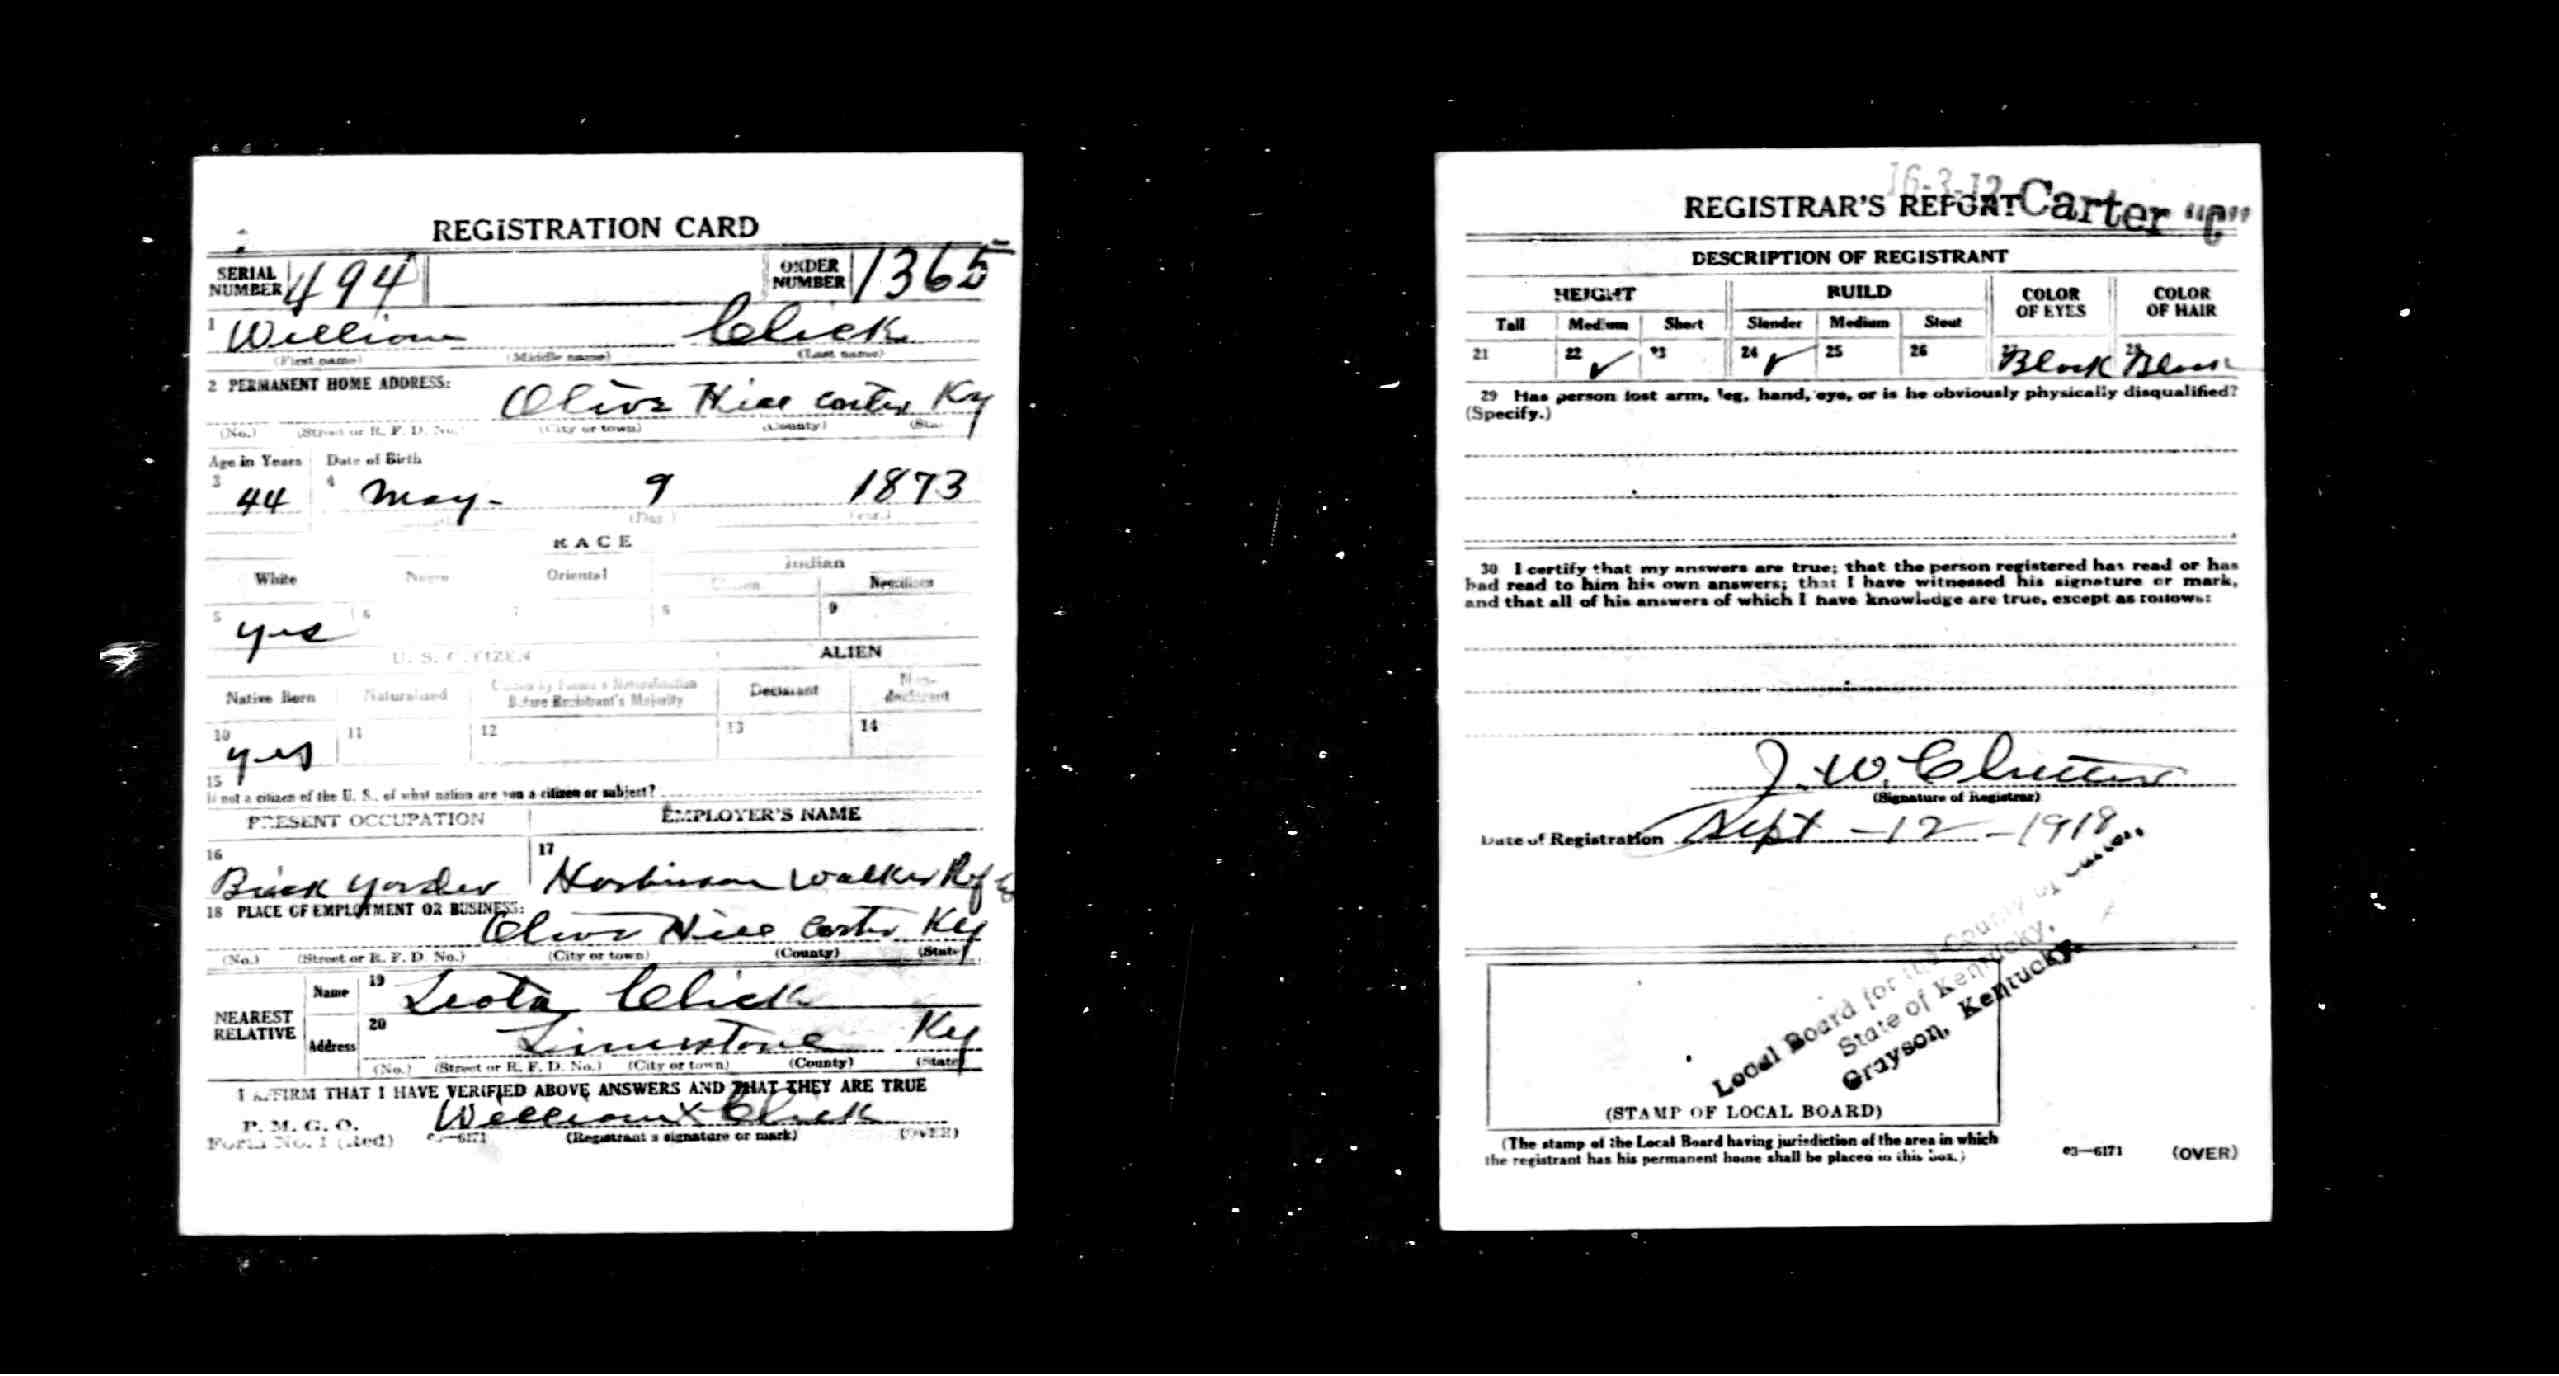 REGISTRATION CARD
SERIAL NUMBER 494
ORDER NUMBER 1365
1 William Click
(First name) (Middle name) (Last name)
2 PERMANENT HOME ADDRESS:
Olive Hill Carter Ky
(No.) (Street or R. F. D. No.) (City or town) (County) (State)
Age in Years Date of Birth
3 44 4 May - 9 1873
(Day.) (Year.)
RACE
White Negro Oriental Indian
Citizen Noncitizen
5 yes 6 7 8 9
U. S. CITIZEN ALIEN
Native Born Naturalized Citizen by Father's Naturalization Before Registrant's Majority Declarant Non-declarant
10 yes 11 12 13 14
15
If not a citizen of the U. S., of what nation are you a citizen or subject?
PRESENT OCCUPATION EMPLOYER'S NAME
16 Brick Yarder 17 Harbison Walker Rf
18 PLACE OF EMPLOYMENT OR BUSINESS:
Olive Hill Carter Ky
(No.) (Street or R. F. D. No.) (City or town) (County) (State)
NEAREST RELATIVE
Name 19 Leota Click
Address 20 Limestone Ky
(No.) (Street or R. F. D. No.) (City or town) (County) (State)
I AFFIRM THAT I HAVE VERIFIED ABOVE ANSWERS AND THAT THEY ARE TRUE
P. M. G. O.
Form No. 1 (Red) 03—6171
William X Click
(Registrant's signature or mark) (OVER)
16-3-12 Carter "C"
REGISTRAR'S REPORT
DESCRIPTION OF REGISTRANT
HEIGHT BUILD COLOR OF EYES COLOR OF HAIR
Tall Medium Short Slender Medium Stout
21 22 ✓ 23 24 ✓ 25 26 27 Black 28 Black
29 Has person lost arm, leg, hand, eye, or is he obviously physically disqualified?
(Specify.)
30 I certify that my answers are true; that the person registered has read or has
had read to him his own answers; that I have witnessed his signature or mark,
and that all of his answers of which I have knowledge are true, except as follows:
J. W.
(Signature of Registrar)
Date of Registration Sept - 12 - 1918
Local Board for the County of Carter,
State of Kentucky,
Grayson, Kentucky.
(STAMP OF LOCAL BOARD)
(The stamp of the Local Board having jurisdiction of the area in which
the registrant has his permanent home shall be placed in this box.)
03—6171 (OVER)